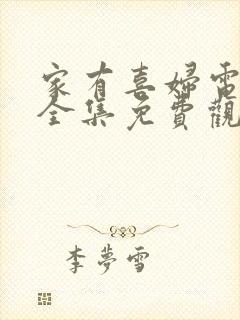 家有喜婦電
全集免費觀
李夢雪